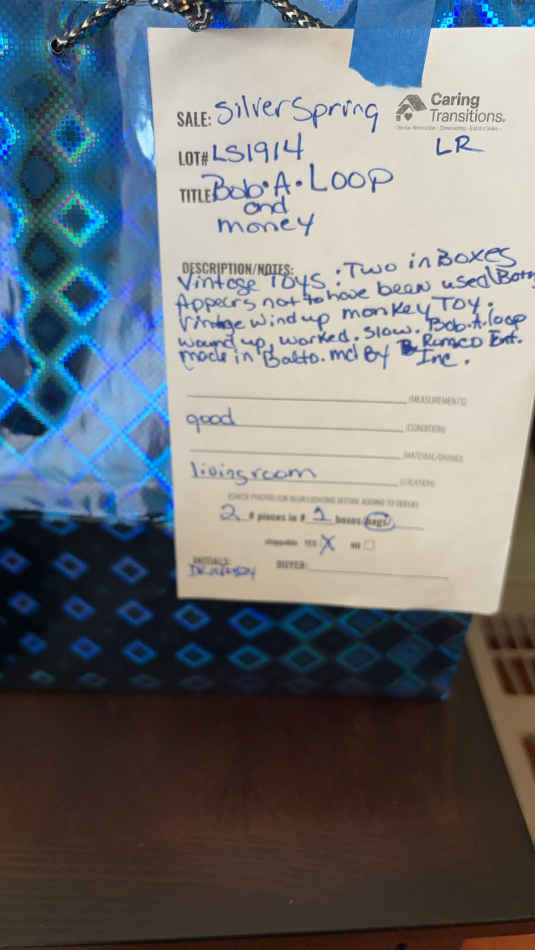 SALE: Silver Spring
Caring
Transitions.
LOT# LS1914
LR
TITLE: Bob·A·Loop
and
money
DESCRIPTION/NOTES:
Vintage Toys: Two in Boxes
Appears not to have been used
Vintage wind up monkey Toy.
wound up, worked. slow. Bob.A.loop
made in Balto. md By Romco Ent.
Inc.
(MEASUREMENTS)
good (CONDITION)
(MATERIAL/BRAND)
livingroom (LOCATION)
2 # pieces in # 1 boxes/bags/
shippable YES X NO
INITIALS:
BUYER: